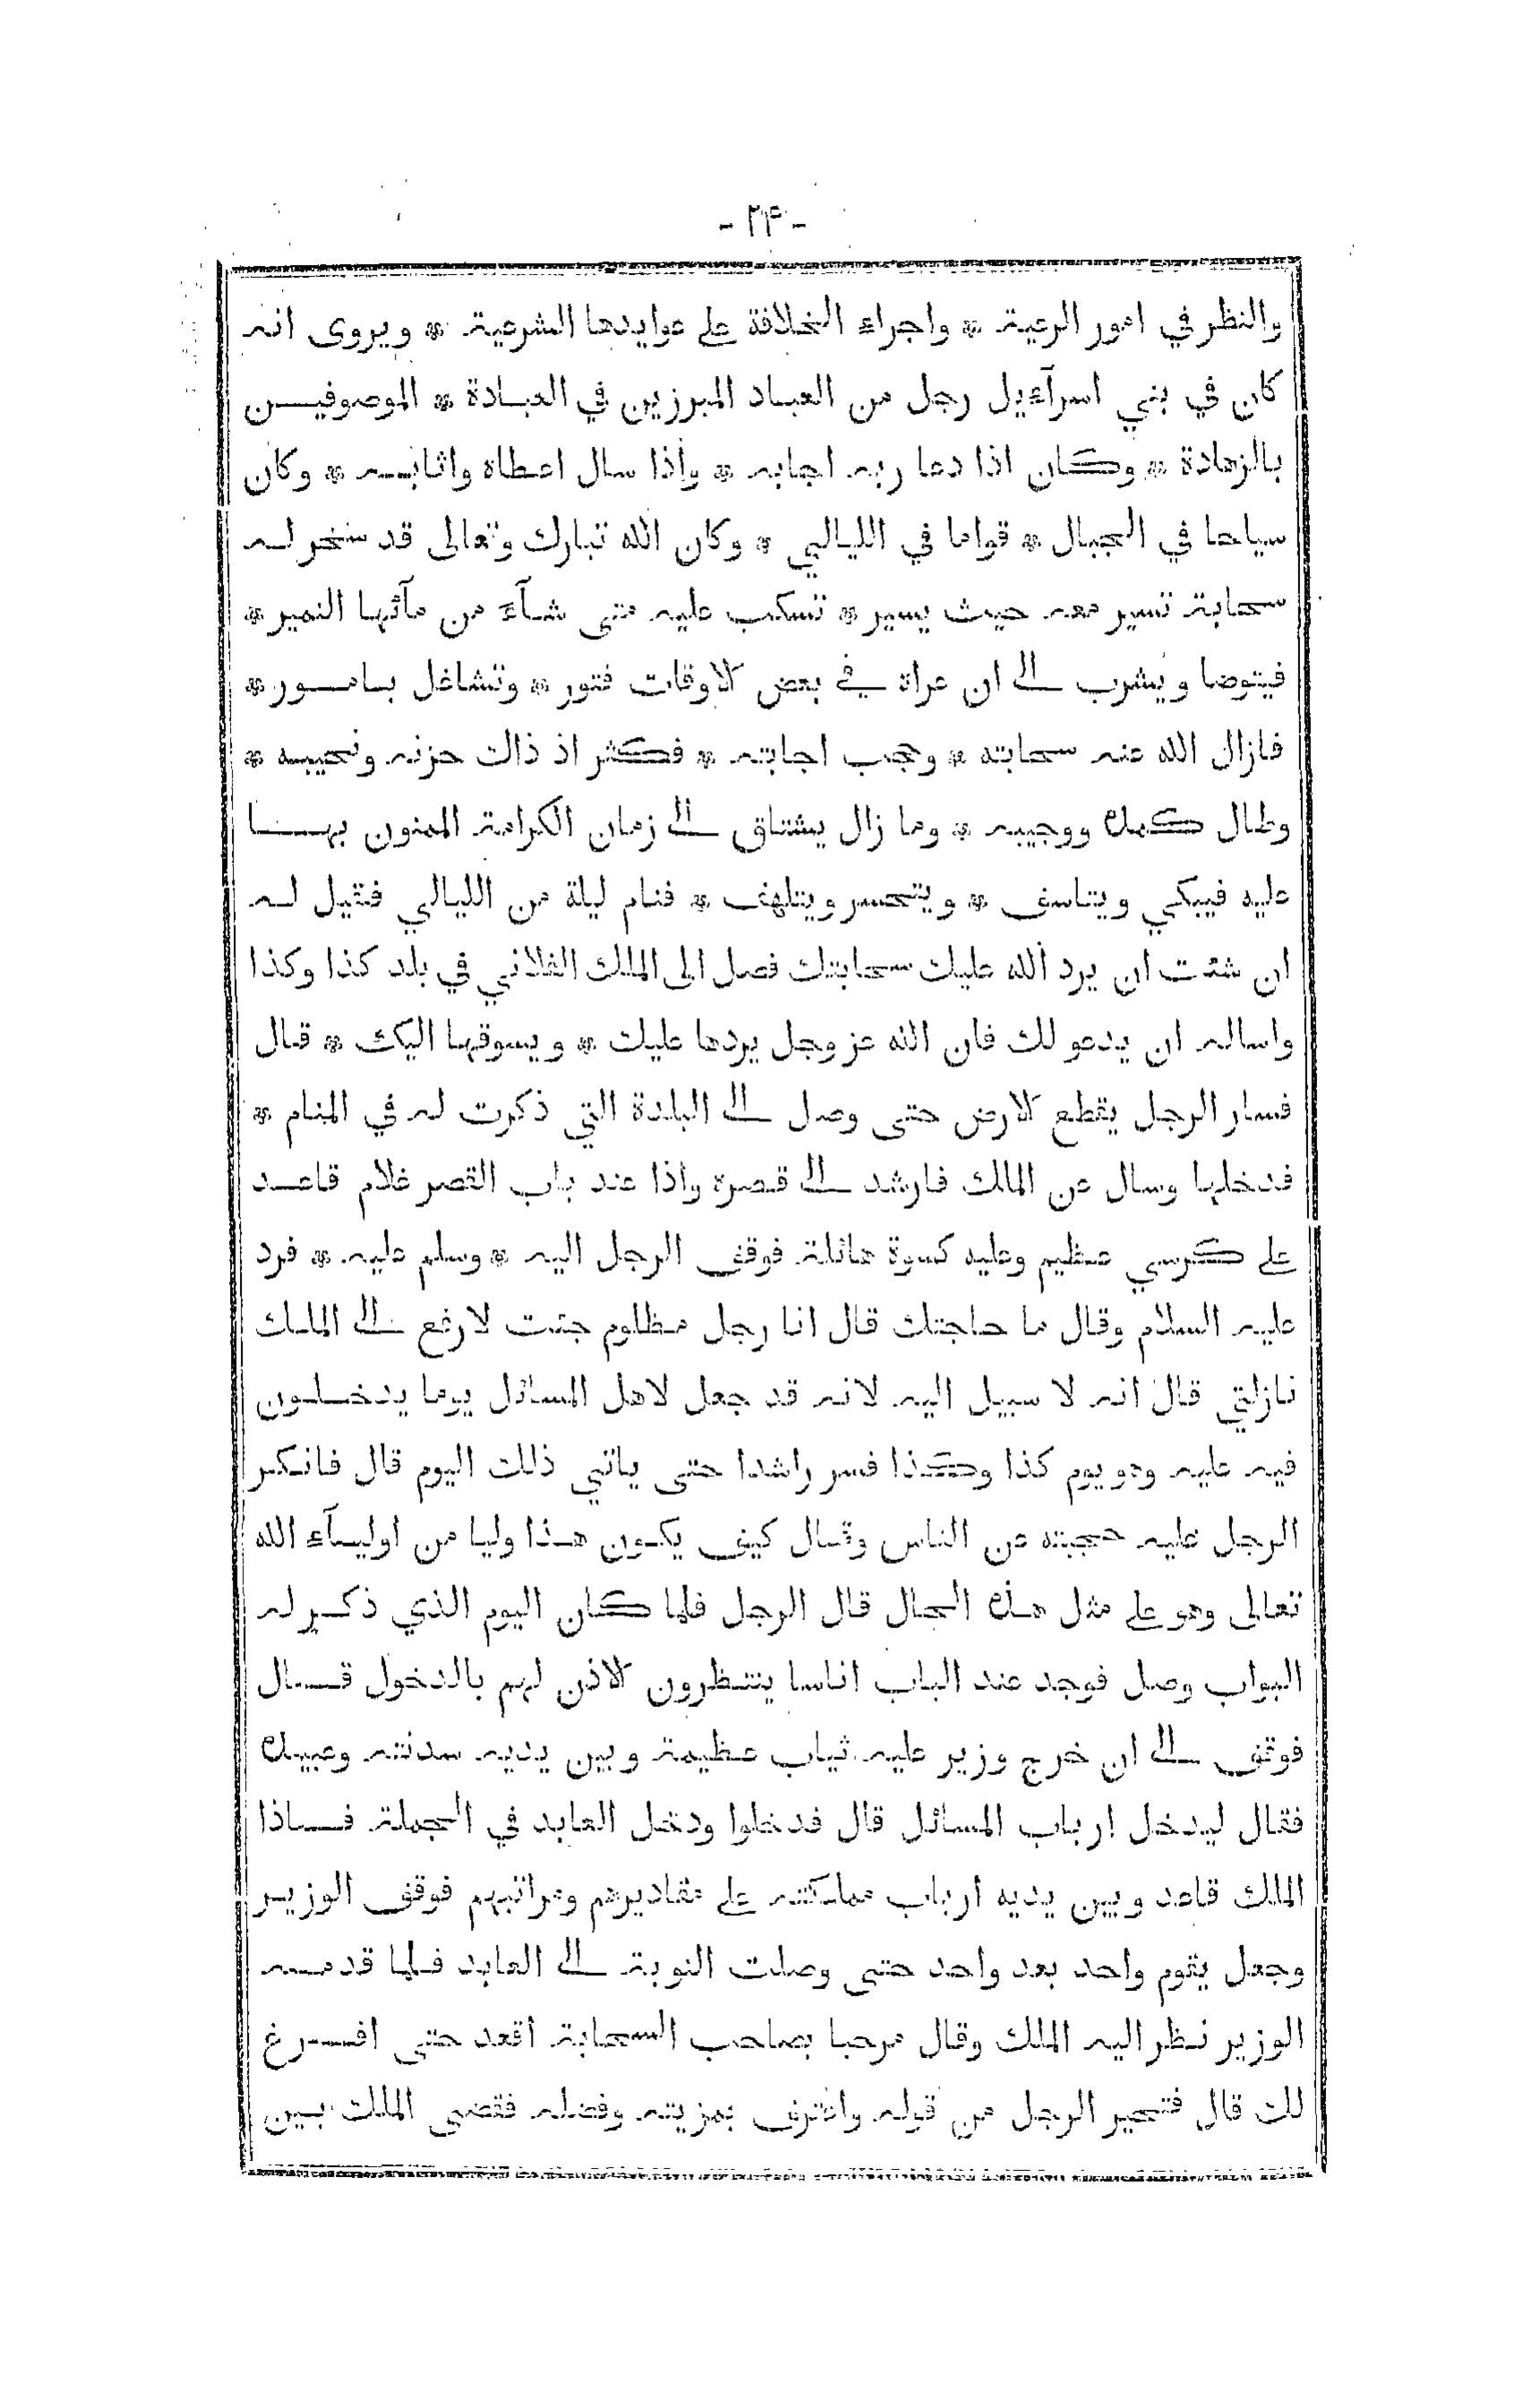 - ٢٤ -
والنظر في امور الرعية * واجراء الخلافة على عوايدها الشرعية * ويروى انه
كان في بني اسرآءيل رجل من العباد المبرزين في العبادة * الموصوفين
بالزهادة * وكان اذا دعا ربه اجابه * واذا سال اعطاه واثابه * وكان
سياحا في الجبال * قواما في الليالي * وكان الله تبارك وتعالى قد سخر له
سحابة تسير معه حيث يسير * تسكب عليه متى شآء من مآئها النمير *
فيتوضا ويشرب الى ان عراه في بعض الاوقات فتور * وتشاغل بامور *
فازال الله عنه سحابته * وحجب اجابته * فكثر اذ ذاك حزنه ونحيبه *
وطال كمده ووجيبه * وما زال يشتاق الى زمان الكرامة الممنون بها
عليه فيبكي ويتاسف * ويتحسر ويتلهف * فنام ليلة من الليالي فقيل له
ان شئت ان يرد الله عليك سحابتك فصل الى الملك الفلاني في بلد كذا وكذا
واساله ان يدعو لك فان الله عز وجل يردها عليك * ويسوقها اليك * قال
فسار الرجل يقطع الارض حتى وصل الى البلدة التي ذكرت له في المنام *
فدخلها وسال عن الملك فارشد الى قصره واذا عند باب القصر غلام قاعد
على كرسي عظيم وعليه كسوة هائلة فوقف الرجل اليه * وسلم عليه * فرد
عليه السلام وقال ما حاجتك قال انا رجل مظلوم جئت لارفع الى الملك
نازلتي قال انه لا سبيل اليه لانه قد جعل لاهل المسائل يوما يدخلون
فيه عليه وهو يوم كذا وكذا فسر راشدا حتى ياتي ذلك اليوم قال فانكر
الرجل عليه حجبته عن الناس وقال كيف يكون هذا وليا من اوليآء الله
تعالى وهو على مثل هذه الحال قال الرجل فلما كان اليوم الذي ذكر له
البواب وصل فوجد عند الباب اناسا ينتظرون الاذن لهم بالدخول قال
فوقف الى ان خرج وزير عليه ثياب عظيمة وبين يديه سدنته وعبيده
فقال ليدخل ارباب المسائل قال فدخلوا ودخل العابد في الجملة فاذا
الملك قاعد وبين يديه ارباب مملكته على مقاديرهم ومراتبهم فوقف الوزير
وجعل يقوم واحد بعد واحد حتى وصلت النوبة الى العابد فلما قدمه
الوزير نظر اليه الملك وقال مرحبا بصاحب السحابة اقعد حتى افرغ
لك قال فتحير الرجل من قوله واعترف بمزيته وفضله فقضى الملك بين